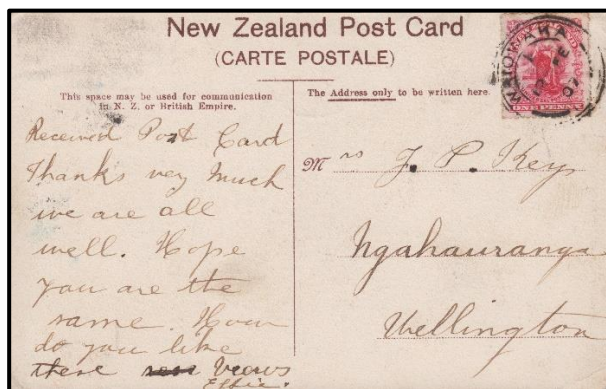 New Zealand Post Card
(CARTE POSTALE)
This space may be used for communication
in N. Z. or British Empire.
The Address only to be written here.
Received Post Card
Thanks very much
we are all
well. Hope
you are the
same. How
do you like
these Views
Effie.
Mrs J. P. Key
Ngahauranga
Wellington
ONE PENNY